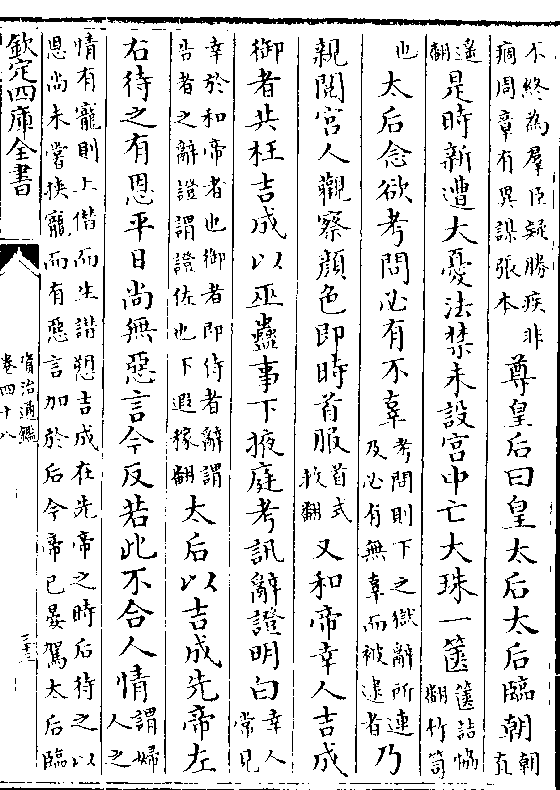 不終為羣臣疑勝疾非痼周章有異謀張本尊皇后曰皇太后太后臨朝朝直
遙翻是時新遭大憂法禁未設宮中亡大珠一篋篋詰愶翻竹笥
也太后念欲考問必有不辜考問則下之獄辭所連及必有無辜而被逮者乃
親閱宮人觀察顏色即時首服首式救翻又和帝幸人吉成
御者共枉吉成以巫蠱事下掖庭考訊辭證明白幸人常見
幸於和帝者也御者即侍者辭謂告者之辭證謂證佐也下遐稼翻太后以吉成先帝左
右待之有恩平日尚無惡言今反若此不合人情謂婦人之
情有寵則上僭而生譖愬吉成在先帝之時后待之以恩尚未嘗挾寵而有惡言加於后今帝已晏駕太后臨
欽定四庫全書
資治通鑑
卷四十八